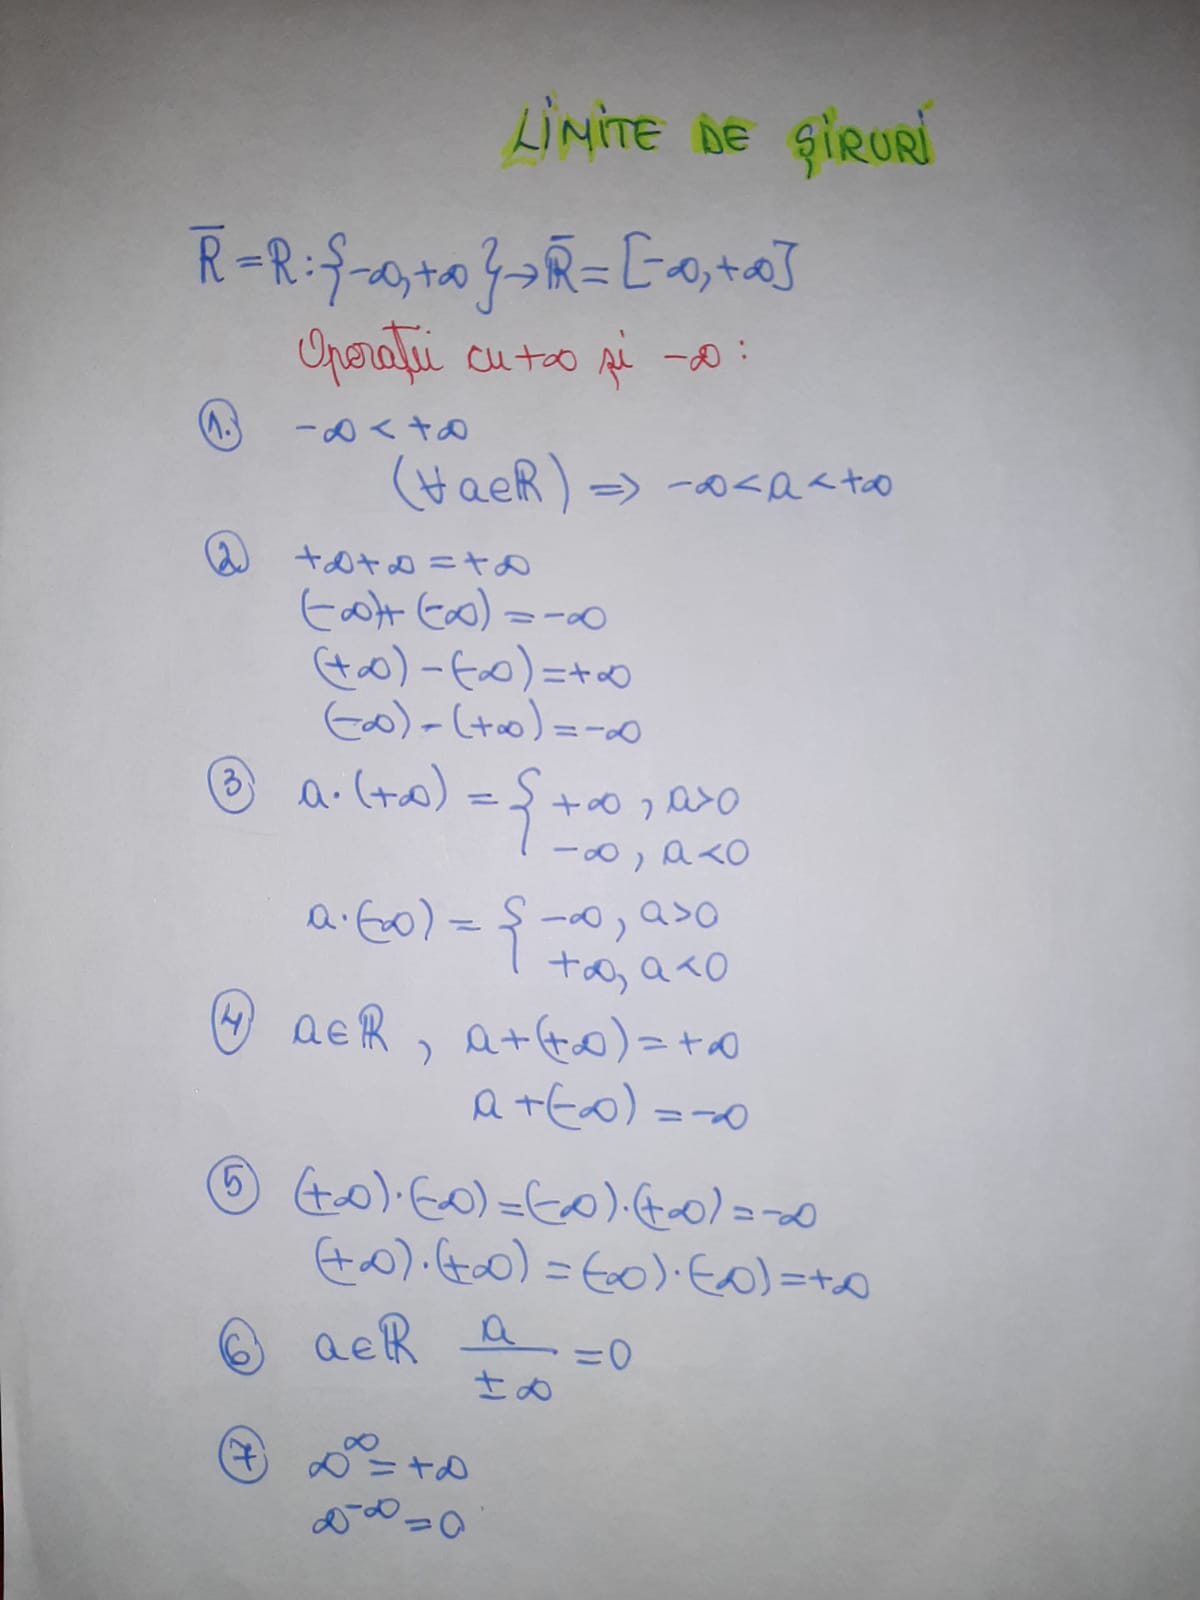 LIMITE DE ŞIRURI
R̅ = R : {-∞, +∞} → R̅ = [-∞, +∞]
Operații cu +∞ și -∞ :
1. -∞ < +∞
(∀ a∈ℝ) ⇒ -∞ < a < +∞
2 +∞+∞ = +∞
(-∞)+(-∞) = -∞
(+∞)-(-∞) = +∞
(-∞)-(+∞) = -∞
3 a·(+∞) = { +∞, a>0
-∞, a<0
a·(-∞) = { -∞, a>0
+∞, a<0
4 a∈ℝ, a+(+∞) = +∞
a+(-∞) = -∞
5 (+∞)·(-∞) = (-∞)·(+∞) = -∞
(+∞)·(+∞) = (-∞)·(-∞) = +∞
6 a∈ℝ a/±∞ = 0
7 ∞^∞ = +∞
∞^-∞ = 0